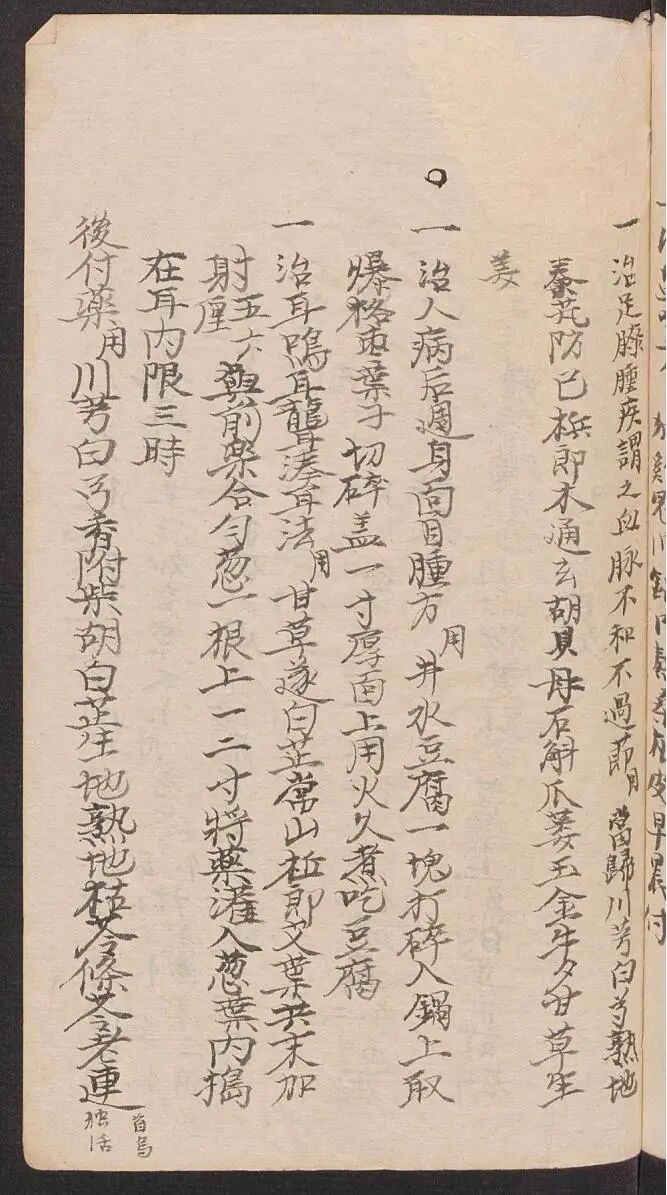 一 治足膝腫疾謂之血脉不和不過節用當歸川芎白芍熟地
秦芃防己梹郎木通玄胡貝母石斛瓜蒌玉金牛夕甘草生
姜
一 治人病后週身面目腫方用井水豆腐一塊打碎入鍋上取
爆格枣葉子切碎盖一寸厚面上用火久煮吃豆腐
一 治耳鳴耳聾湊耳法用甘草遂白芷常山梹郎艾葉共末加
射五六厘與前薬合匀葱一根上一二寸將藥灌入葱葉内搗
在耳内限三時
後付藥用川芎白芍香附柴胡白芷生地熟地枯芩條芩老連
首烏
独活